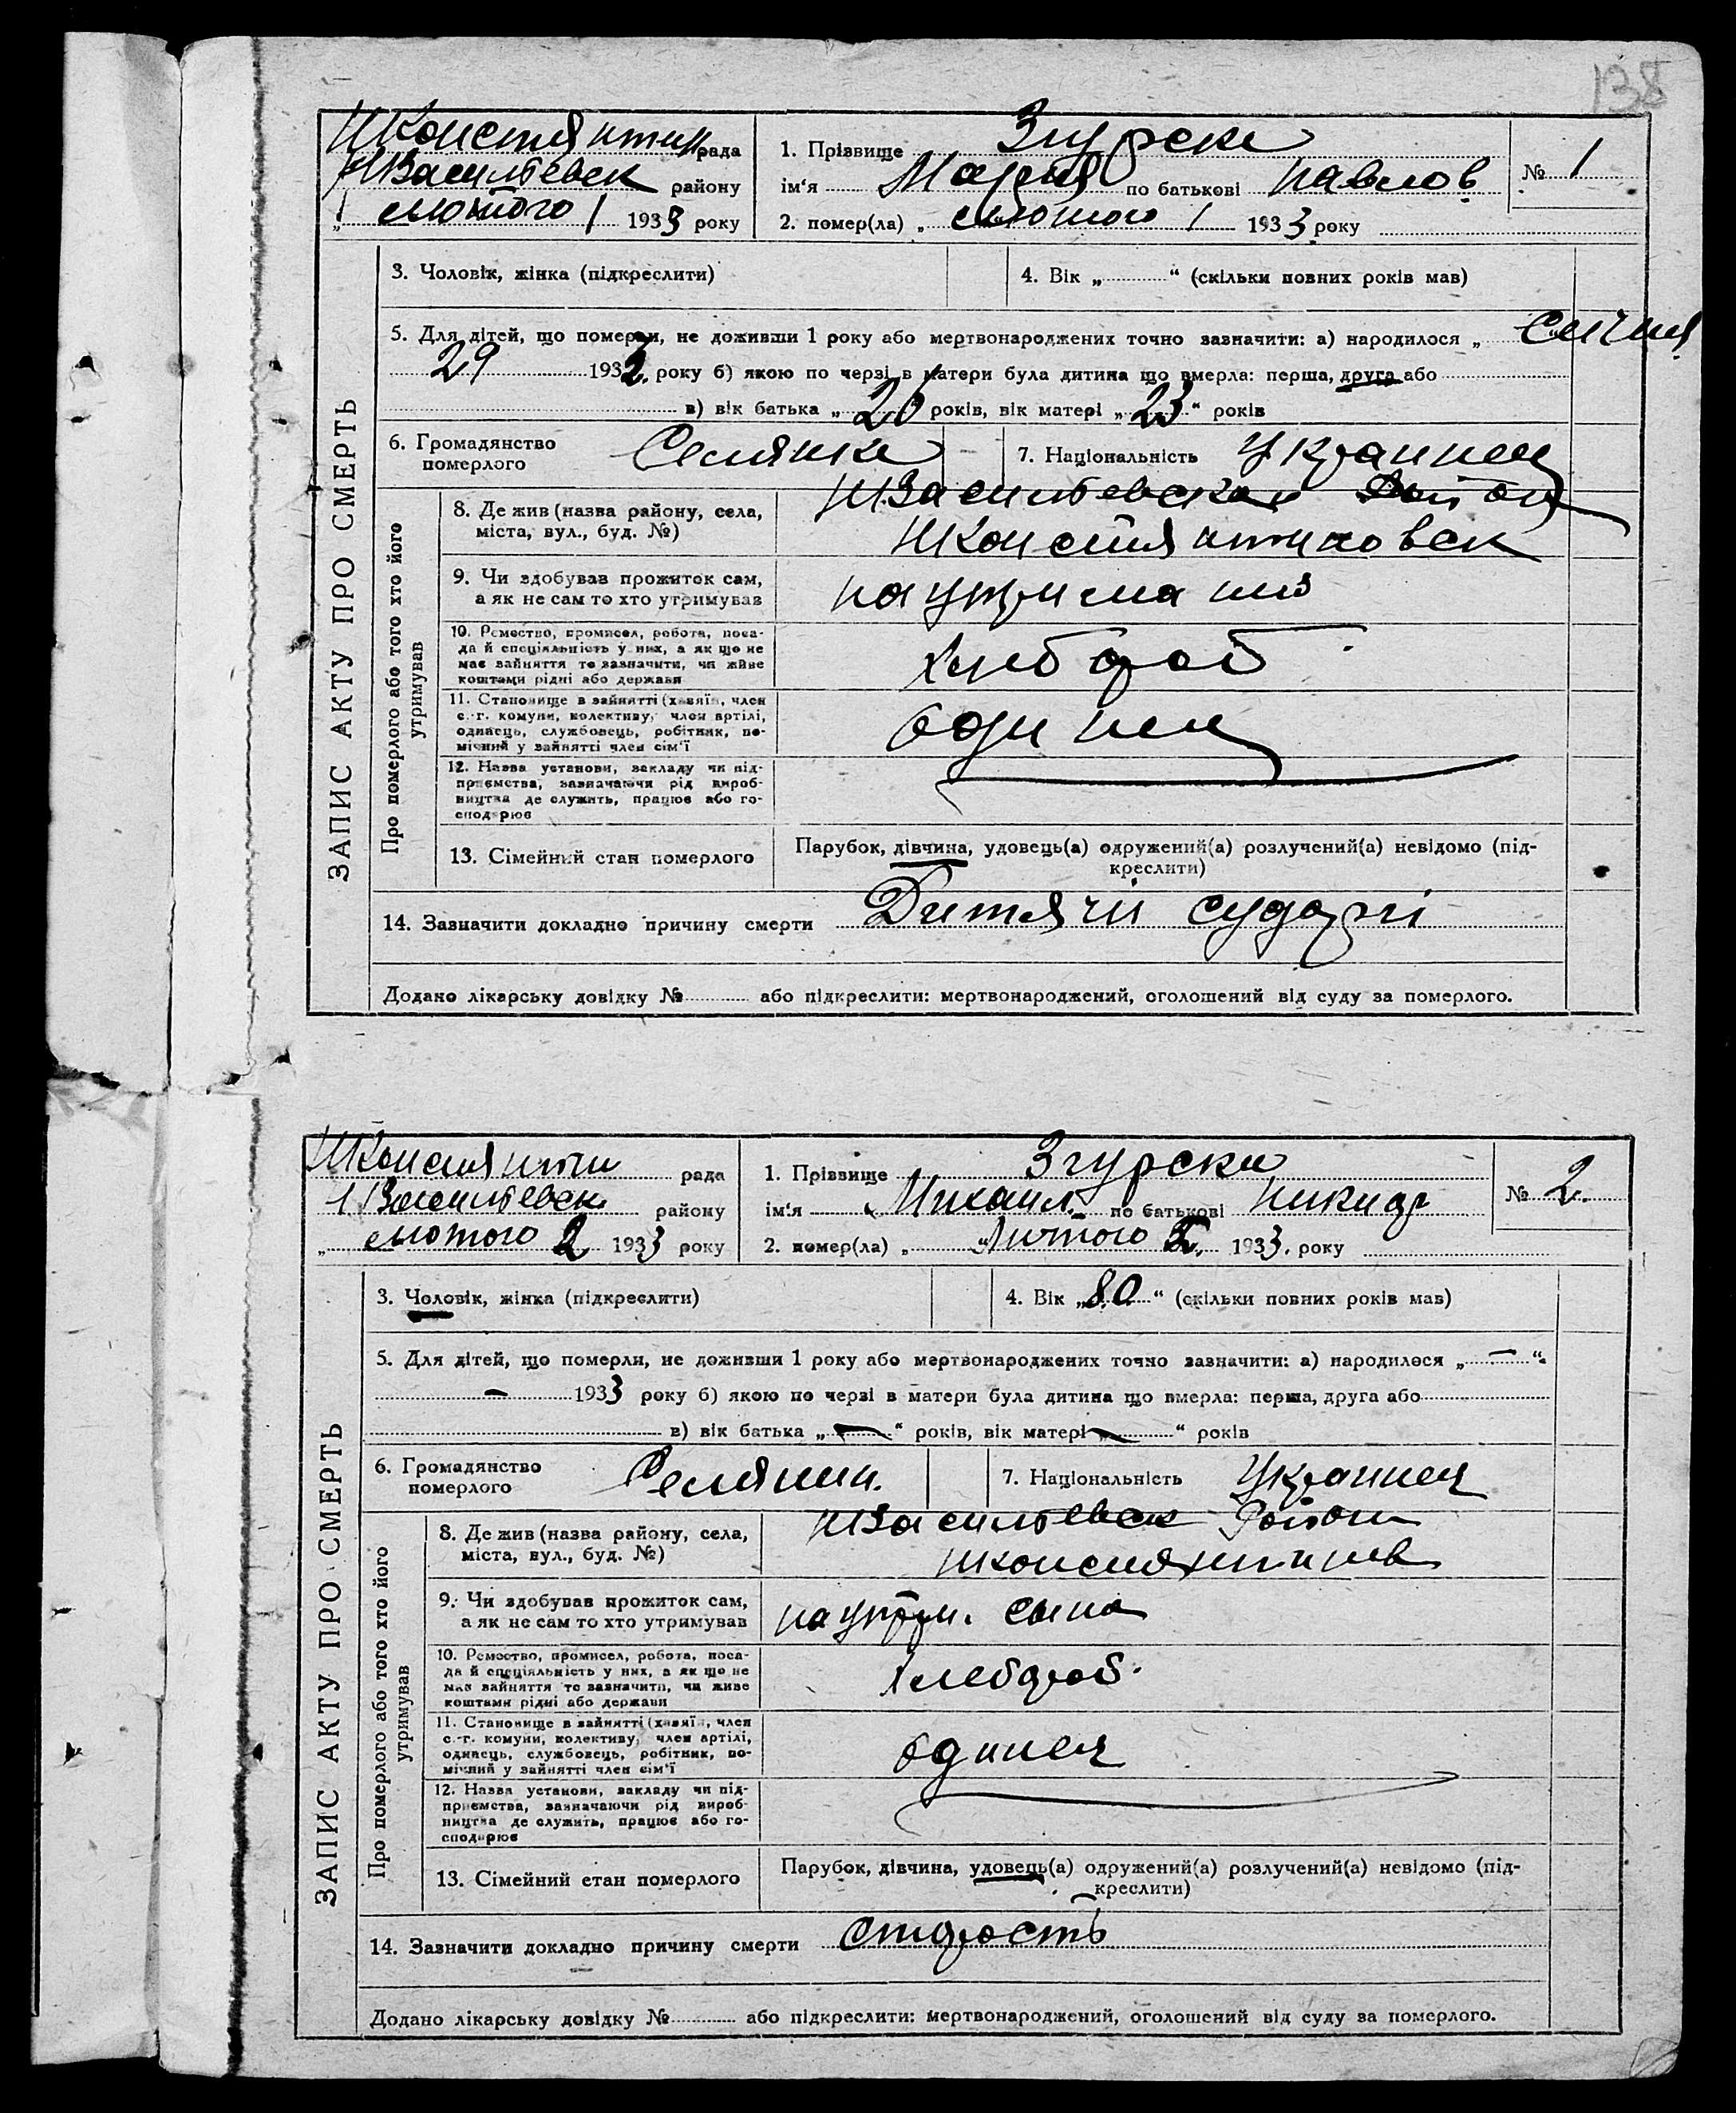 138
НКонстянтин рада
НВасилтевск району
„1 лютого 1 1933 року
1. Прізвище Згурски
ім'я Мария по батькові Павлов
2. помер(ла) „ лютого 1 1933 року
№ 1
3. Чоловік, жінка (підкреслити)
4. Вік „ “ (скільки повних років мав)
5. Для дітей, що померли, не доживши 1 року або мертвонароджених точно зазначити: а) народилося „ Сичня
29 1932. року б) якою по черзі в матери була дитина що вмерла: перша, друга або
в) вік батька „26“ років, вік матері „23“ років
6. Громадянство
померлого
Селянка
7. Національність Украинец
ЗАПИС АКТУ ПРО СМЕРТЬ
Про померлого або того хто його
утримував
8. Де жив (назва району, села,
міста, вул., буд. №)
НВасилтевскаи
НКонстянтиновск
9. Чи здобував прожиток сам,
а як не сам то хто утримував
на утримании
10. Ремество, промисел, робота, поса-
да й спеціяльність у них, а як що не
має зайняття то зазначити, чи живе
коштами рідні або держави
хлебороб
11. Становище в зайнятті (хазяїн, член
с.-г. комуни, колективу, член артілі,
одинець, службовець, робітник, по-
мічний у зайнятті член сім'ї
одинец
12. Назва установи, закладу чи під-
приємства, зазначаючи рід вироб-
ництва де служить, працює або го-
сподарює
13. Сімейний стан померлого
Парубок, дівчина, удовець(а) одружений(а) розлучений(а) невідомо (під-
креслити)
14. Зазначити докладно причину смерти Дитячи судоргі
Додано лікарську довідку № або підкреслити: мертвонароджений, оголошений від суду за померлого.
НКонстянтин рада
НВасилтевск району
„ лютого 2 1933 року
1. Прізвище Згурски
ім'я Михаил по батькові Никифор
2. помер(ла) „ Лютого 2. 1933. року
№ 2.
3. Чоловік, жінка (підкреслити)
4. Вік „80“ (скільки повних років мав)
5. Для дітей, що померли, не доживши 1 року або мертвонароджених точно зазначити: а) народилося „ — “
— 1933 року б) якою по черзі в матери була дитина що вмерла: перша, друга або
в) вік батька „—“ років, вік матері „—“ років
6. Громадянство
померлого
Селянин.
7. Національність Украинец
ЗАПИС АКТУ ПРО СМЕРТЬ
Про померлого або того хто його
утримував
8. Де жив (назва району, села,
міста, вул., буд. №)
НВасилтевск Район
9. Чи здобував прожиток сам,
а як не сам то хто утримував
на утрим. сына
10. Ремество, промисел, робота, поса-
да й спеціяльність у них, а як що не
має зайняття то зазначити, чи живе
коштами рідні або держави
хлебороб.
11. Становище в зайнятті (хазяїн, член
с.-г. комуни, колективу, член артілі,
одинець, службовець, робітник, по-
мічний у зайнятті член сім'ї
одинец
12. Назва установи, закладу чи під-
приємства, зазначаючи рід вироб-
ництва де служить, працює або го-
сподарює
13. Сімейний стан померлого
Парубок, дівчина, удовець(а) одружений(а) розлучений(а) невідомо (під-
креслити)
14. Зазначити докладно причину смерти старость
Додано лікарську довідку № або підкреслити: мертвонароджений, оголошений від суду за померлого.